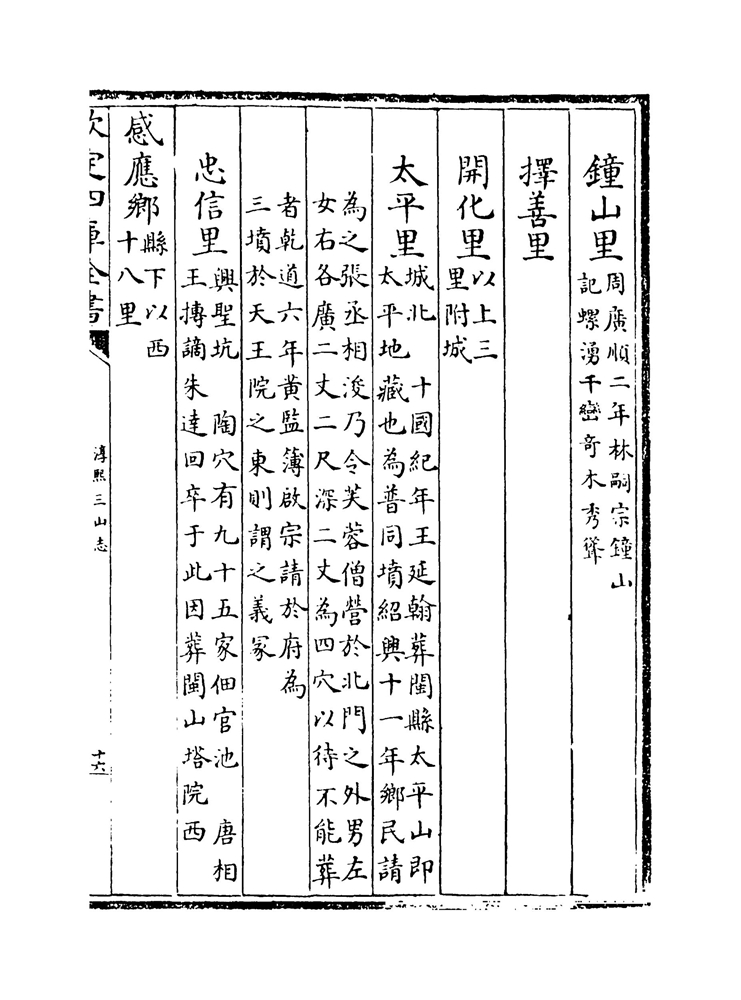 鐘山里周廣順二年林嗣宗鐘山
記螺湧千巒奇木秀聳
擇善里
開化里以上三
里附城
太平里城北　十國紀年王延翰葬閩縣太平山即
太平地藏也為普同墳紹興十一年鄉民請
為之張丞相浚乃令芙蓉僧營於北門之外男左
女右各廣二丈二尺深二丈為四穴以待不能葬
者乾道六年黃監簿啟宗請於府為
三墳於天王院之東則謂之義冢
忠信里興聖坑　陶穴有九十五家佃官池　唐相
王摶謫朱達回卒于此因葬閩山塔院西
感應鄉縣下以西
十八里
欽定四庫全書
淳熙三山志
十六